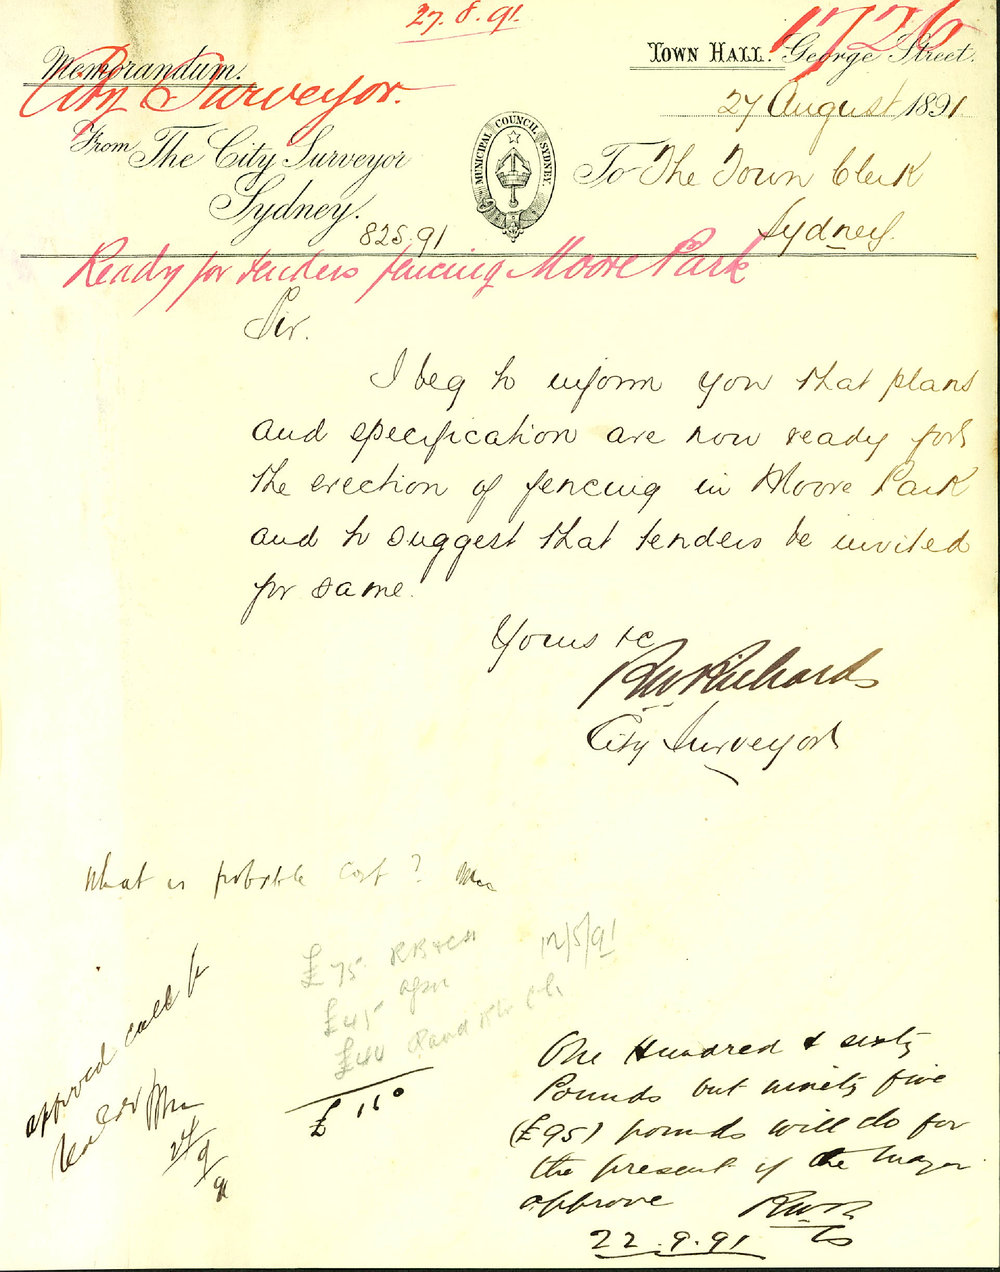 27.8.91.
1726
Memorandum.
City Surveyor.
TOWN HALL. George Street.
27 August 1891
From The City Surveyor
Sydney.
MUNICIPAL COUNCIL SYDNEY.
To The Town Clerk
Sydney.
825.91
Ready for tenders fencing Moore Park
Sir.
I beg to inform you that plans
and specification are now ready for
the erection of fencing in Moore Park
and to suggest that tenders be invited
for same.
Yours &c
RW Richards
City Surveyor
What is probable cost?
£75
12/5/91
£45
£40
£160
approved call for
One Hundred & sixty
Pounds but ninety five
(£95) pounds will do for
the present if the Mayor
approve
RWR
CS
22.9.91